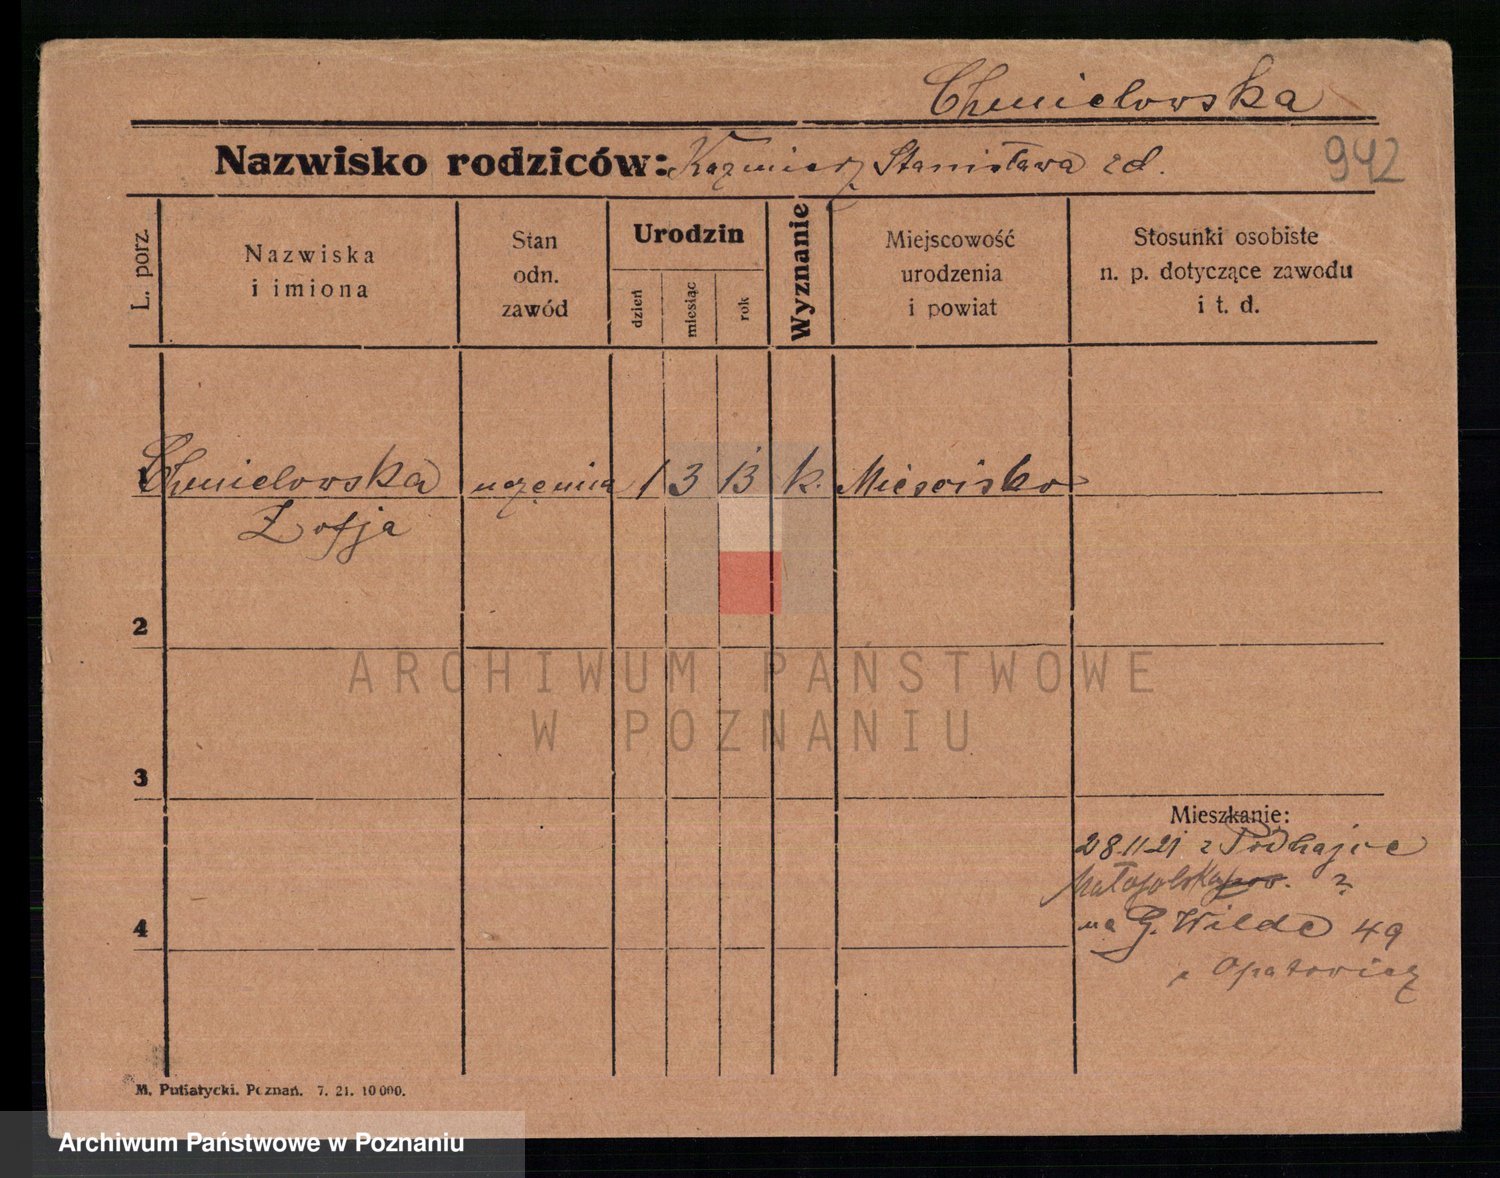 Chmielowska
Nazwisko rodziców: Kazmierz Stanisława zd.
942
L. porz.
Nazwiska
i imiona
Stan
odn.
zawód
Urodzin
dzień
miesiąc
rok
Wyznanie
Miejscowość
urodzenia
i powiat
Stosunki osobiste
n. p. dotyczące zawodu
i t. d.
1 Chmielowska uczenica 1 3 13 k. Mieścisko
Zofja
2
3
Mieszkanie:
28 11 21 z Podhajce
Małopolska
4
na G. Wilde 49
Opatowicz
M. Putiatycki. Poznań. 7. 21. 10 000.
ARCHIWUM PAŃSTWOWE
W POZNANIU
Archiwum Państwowe w Poznaniu